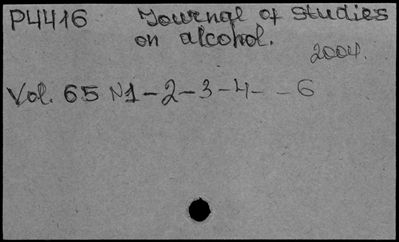 P4416 Journal of studies
on alcohol.
2004.
Vol. 65 N1-2-3-4- -6